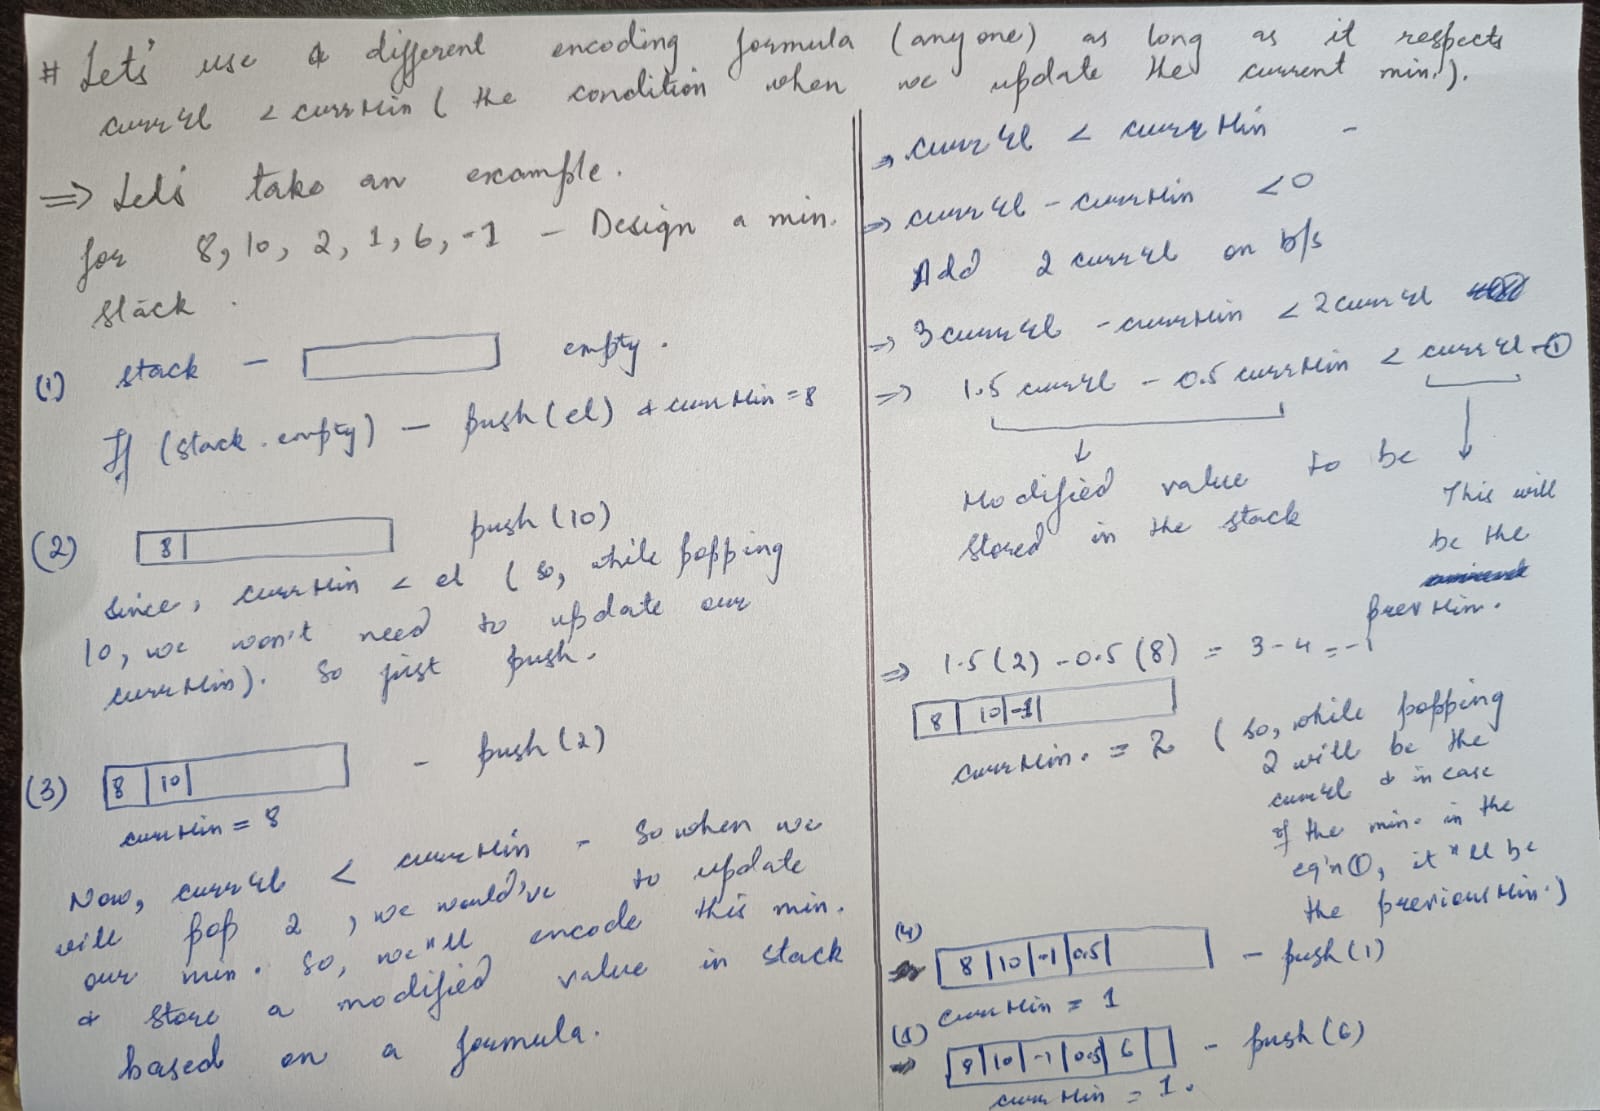 # Let's use a different encoding formula (any one) as long as it respects
currEl < currMin ( the condition when we update the current min.).
=> Let's take an example.
for 8, 10, 2, 1, 6, -1 - Design a min.
stack.
(1) stack - empty.
If (stack.empty) - push(el) & currMin = 8
(2) 8 push(10)
Since, currMin < el ( so, while popping
10, we won't need to update our
currMin). So just push.
(3) 8 | 10 | - push(2)
currMin = 8
Now, currEl < currMin - So when we
will pop 2, we would've to update
our min. So, we'll encode this min.
& store a modified value in stack
based on a formula.
=> currEl < currMin -
=> currEl - currMin < 0
Add 2 currEl on b/s
=> 3 currEl - currMin < 2 currEl
=> 1.5 currEl - 0.5 currMin < currEl - ①
Modified value to be
stored in the stack
This will
be the
prevMin.
=> 1.5(2) - 0.5(8) = 3 - 4 = -1
8 | 10 | -1 |
currMin. = 2 ( so, while popping
2 will be the
currEl & in case
of the min. in the
eq'n ①, it'll be
the previous Min.)
(4)
8 | 10 | -1 | 0.5 | - push(1)
currMin = 1
(5)
=> 8 | 10 | -1 | 0.5 | 6 | - push(6)
currMin = 1.